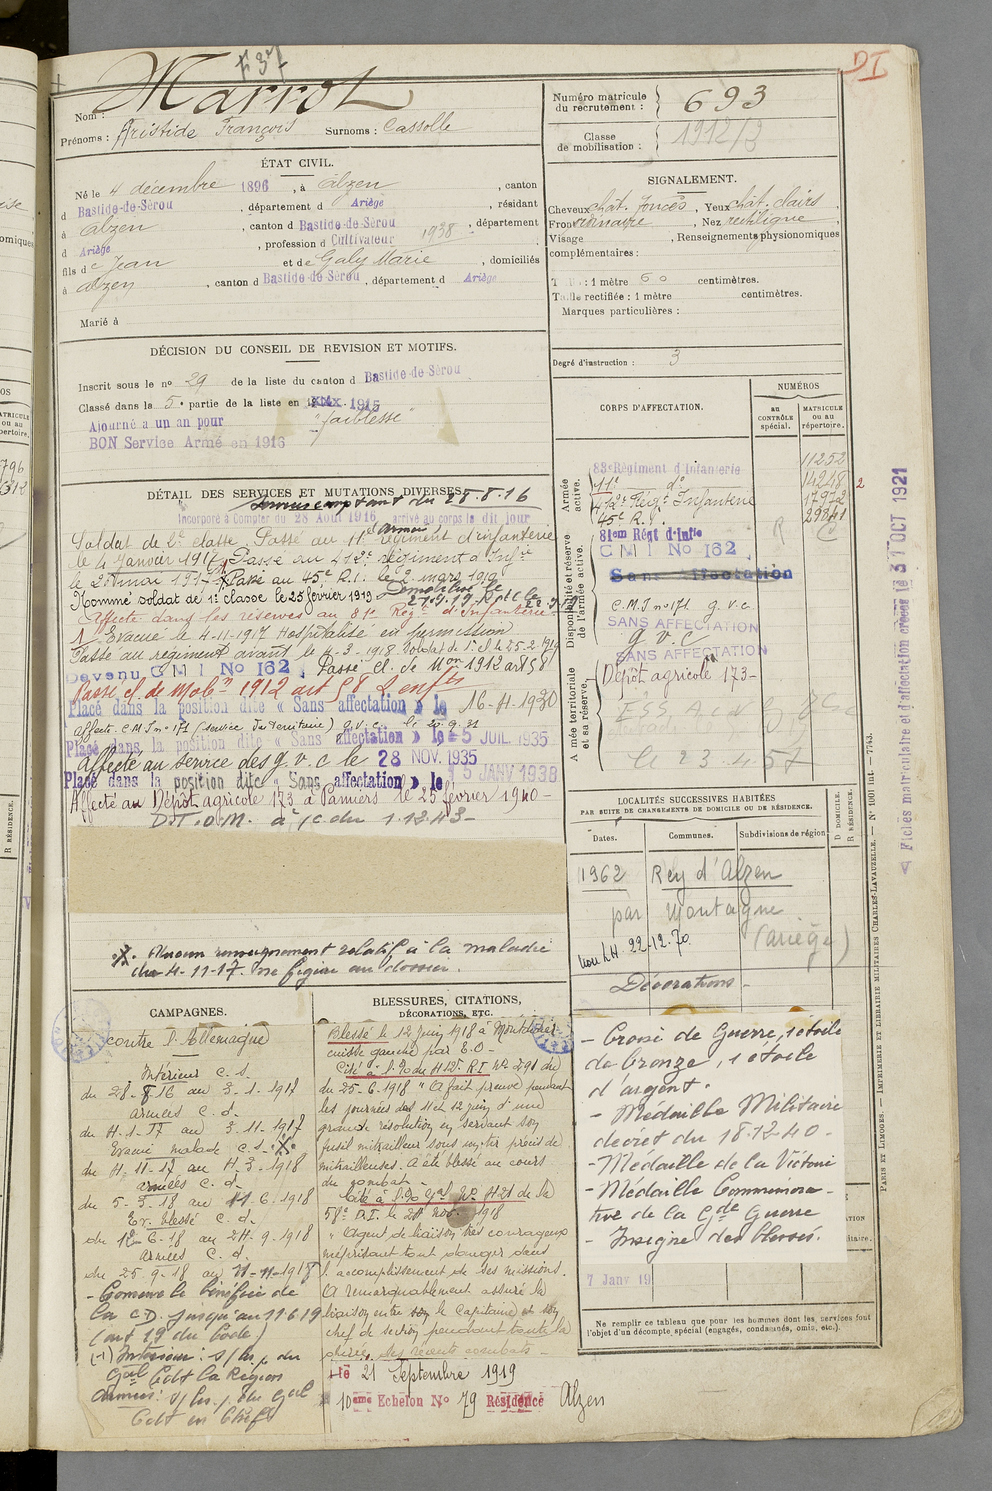 Marrot
Nom :
Prénoms : Aristide François Surnoms : Cassolle
ÉTAT CIVIL.
Né le 4 décembre 1896, à Alzen, canton
d Bastide-de-Sérou, département d Ariège, résidant
à Alzen, canton d Bastide-de-Sérou, département
d Ariège, profession d Cultivateur 1938
fils de Jean et de Galy Marie, domiciliés
à Alzen, canton d Bastide-de-Sérou, département d Ariège
Marié à
DÉCISION DU CONSEIL DE REVISION ET MOTIFS.
Inscrit sous le no 29 de la liste du canton d Bastide-de-Sérou
Classé dans la 5e partie de la liste en 1915
Ajourné a un an pour "faiblesse"
BON Service Armé en 1916
DÉTAIL DES SERVICES ET MUTATIONS DIVERSES.
28.8.16
Incorporé à Compter du 28 Août 1916 arrivé au corps le dit jour
Soldat de 2e classe. Passé au 11e régiment d'infanterie
le 4 janvier 1917. Passé au 412e régiment d'Infie
le 2 mai 1917. Passé au 45e R.I. le 2 mars 1919
Nommé soldat de 1e classe le 25 février 1919
Affecté dans les réserves au 81e Régt d'Infanterie
Evacué le 4-11-1917 Hospitalisé en permission
Passé au régiment avant le 4-3-1918. Soldat de 1e cl le 25-2-1919
Devenu C M I No 162. Passé cl. de Mon 1912 art 58
Passé cl. de Mobon 1912 art 58 2 enfts
Placé dans la position dite « Sans affectation » le 16-11-1930
Affecté C.M.I no 171 (service du Territoire) g.v.c. le 20.9.31
Placé dans la position dite « Sans affectation » le 5 JUIL. 1935
Affecté au service des g.v.c le 28 NOV. 1935
Placé dans la position dite « Sans affectation » le 15 JANV 1938
Affecté au Dépôt agricole 173 à Pamiers le 25 février 1940-
D.T.O.M. à /c. du 1.12.43-
Aucun renseignement relatif à la maladie
du 4-11-17. ne figure au dossier.
CAMPAGNES.
contre l'Allemagne
Intérieur C.S.
du 28-8-16 au 3-1-1917
armées C.d.
du 4-1-17 au 3-11-1917
Evacué malade C.S.
du 4-11-17 au 4-3-1918
armées C.d.
du 5-3-18 au 11-6-1918
Ev. blessé C.d.
du 12-6-18 au 24-9-1918
armées C.d.
du 25-9-18 au 11-11-1918
- Conserve le bénéfice de
la CD. jusqu'au 11-6-19
(art 19 du Code)
Intérieur : s/hs, du
Gal Cdt la Région
armées : s/hs, du Gal
Cdt en Chef
BLESSURES, CITATIONS,
DÉCORATIONS, ETC.
Blessé le 12 juin 1918 à
cuisse gauche par E.O-
Cité à l'O. du 412e R.I. No 291 du
du 25-6-1918 "A fait preuve pendant
les journées des 11 et 12 juin d'une
grande résolution en servant son
fusil mitrailleur sous un tir précis de
mitrailleuses. A été blessé au cours
du combat-
Cité à l'O. Gal No 421 de la
58e D.I. le 21 Nov. 1918
"Agent de liaison très courageux
méprisant tout danger dans
l'accomplissement de ses missions.
A remarquablement assuré la
liaison entre le Capitaine et son
chef de section pendant toute la
durée des récents combats-
le 21 Septembre 1919
10eme Echelon No 79 Résidence Alzen
Numéro matricule
du recrutement : 693
Classe
de mobilisation : 1912/3
SIGNALEMENT.
Cheveux chât. foncés, Yeux chât. clairs,
Front ordinaire, Nez rectiligne,
Visage , Renseignements physionomiques
complémentaires :
Taille : 1 mètre 60 centimètres.
Taille rectifiée : 1 mètre centimètres.
Marques particulières :
Degré d'instruction : 3
CORPS D'AFFECTATION.
NUMÉROS
au
CONTRÔLE
spécial.
MATRICULE
OU AU
répertoire.
Armée
active.
83e Régiment d'Infanterie 11252
11e do 14248
412e Régt Infanterie 17972
45e R.I. 29841
Disponibilité et réserve
de l'armée active.
81em Régt d'Infie
C M I No 162
Sans affectation
C.M.I no 171 g.v.c.
SANS AFFECTATION
g.v.c
SANS AFFECTATION
Armée territoriale
et sa réserve.
Dépôt agricole 173-
le 23.4.57
LOCALITÉS SUCCESSIVES HABITÉES
PAR SUITE DE CHANGEMENTS DE DOMICILE OU DE RÉSIDENCE.
Dates. Communes. Subdivisions de région
D DOMICILE.
R RÉSIDENCE.
1962 Rey d'Alzen
par Montagne
(Ariège)
non LH 22-12-70
Décorations-
- Croix de Guerre, 1 étoile
de bronze, 1 étoile
d'argent.
- Médaille Militaire
décret du 18-12-40-
- Médaille de la Victoire
- Médaille Commémora-
tive de la Gde Guerre
- Insigne des blessés.
7 Janv 19
Ne remplir ce tableau que pour les hommes dont les services font
l'objet d'un décompte spécial (engagés, condamnés, omis, etc.).
DI
Fiches matriculaire et d'affectation créées le 31 OCT 1921
PARIS ET LIMOGES. — IMPRIMERIE ET LIBRAIRIE MILITAIRES CHARLES-LAVAUZELLE. — No 1001 int. — 7743.